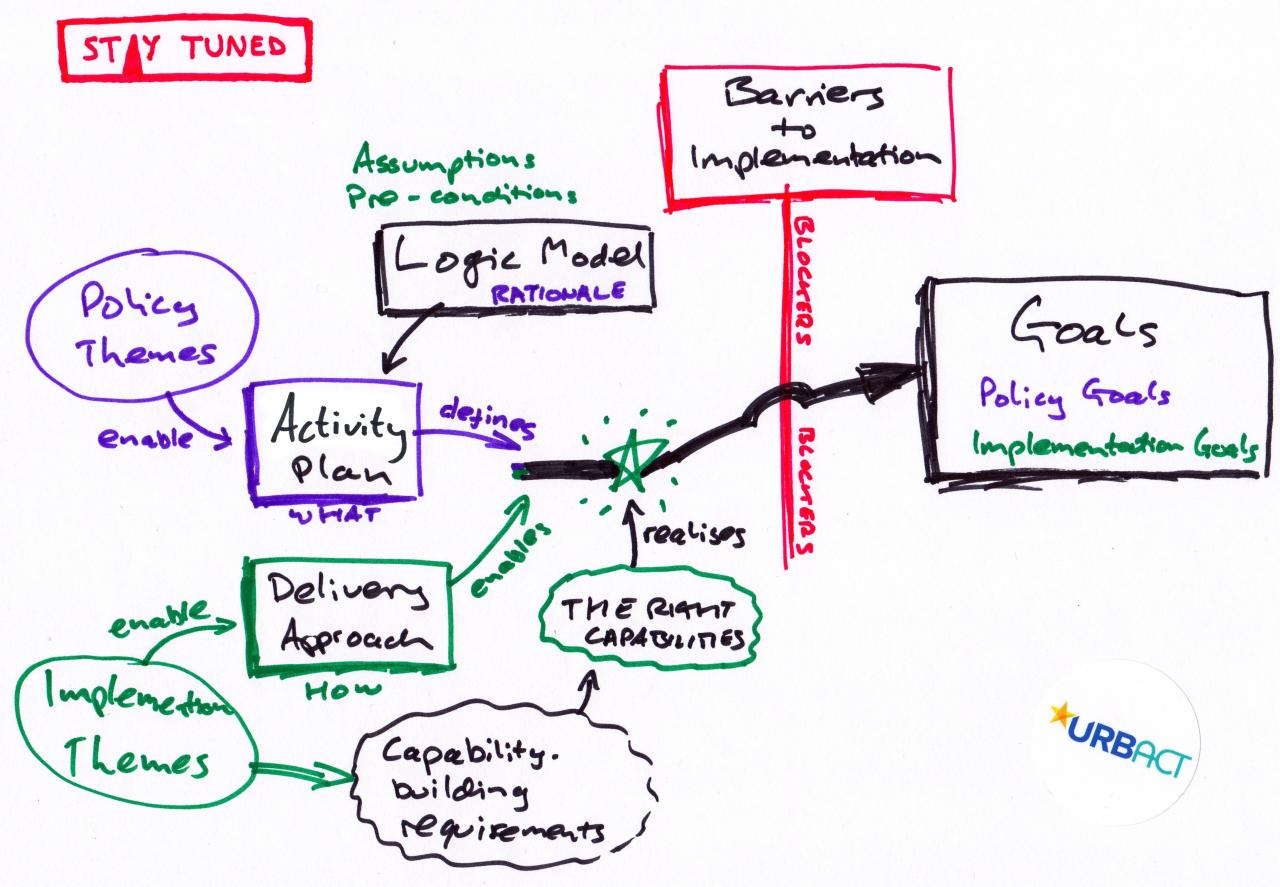 STAY TUNED
Barriers
to
Implementation
Assumptions
Pre-conditions
Logic Model
RATIONALE
BLOCKERS
Policy
Themes
enable
Activity
Plan
WHAT
defines
Goals
Policy Goals
Implementation Goals
BLOCKERS
realises
enables
Delivery
Approach
HOW
enable
THE RIGHT
CAPABILITIES
Implemention
Themes
Capability-
building
requirements
URBACT